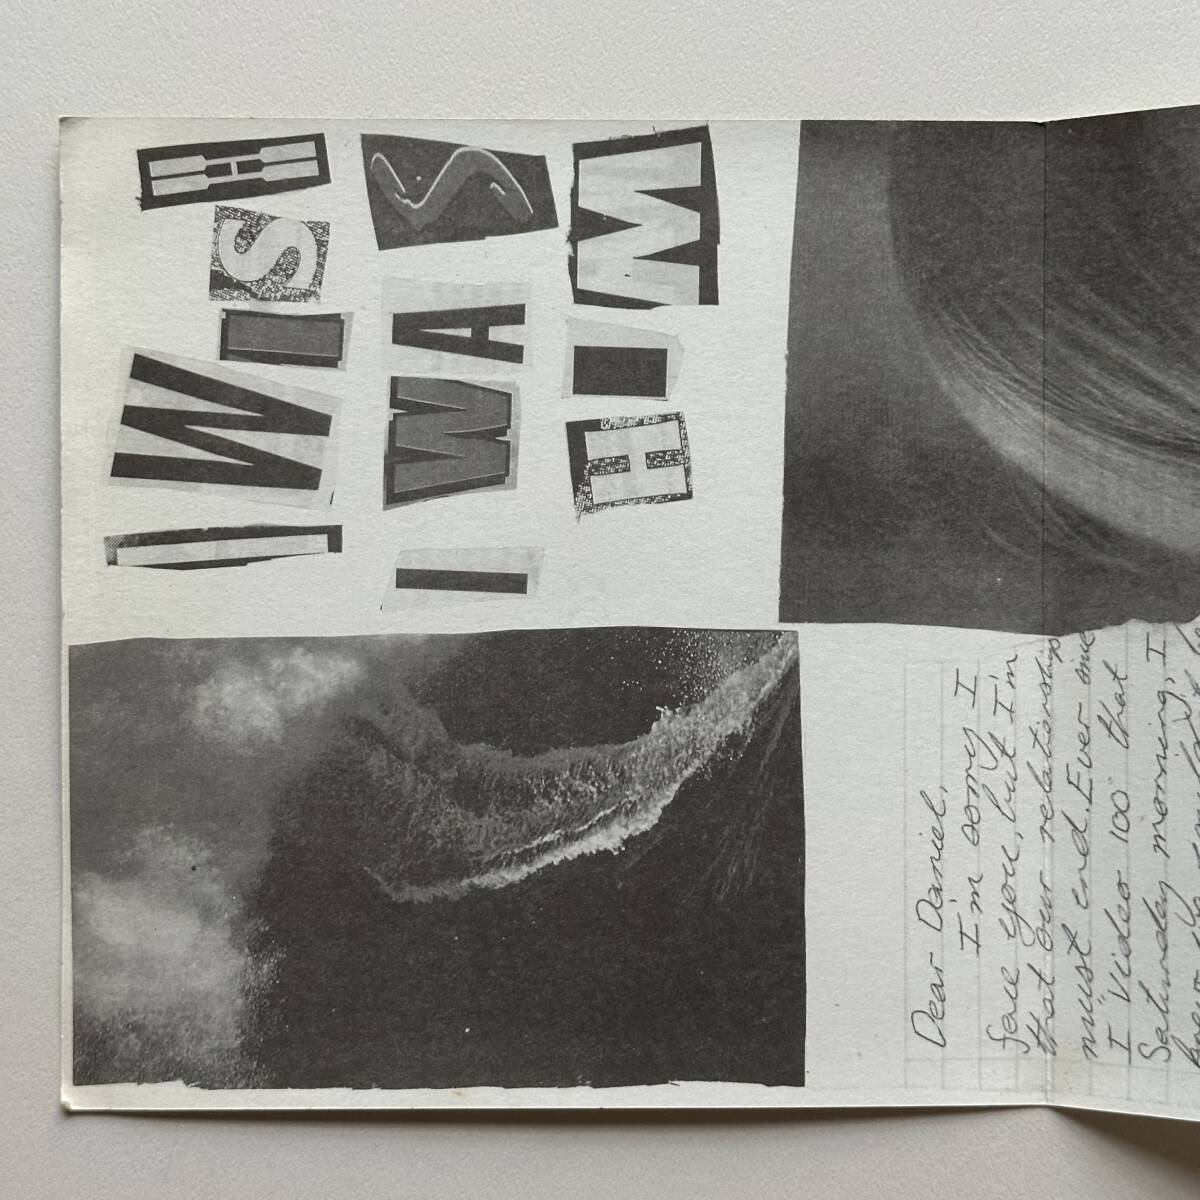 I WISH
I WAS
HIM
Dear Daniel,
I'm sorry I
face you, but I'm
that our relationship
must end. Ever since
I "Video 100" that
Saturday morning, I